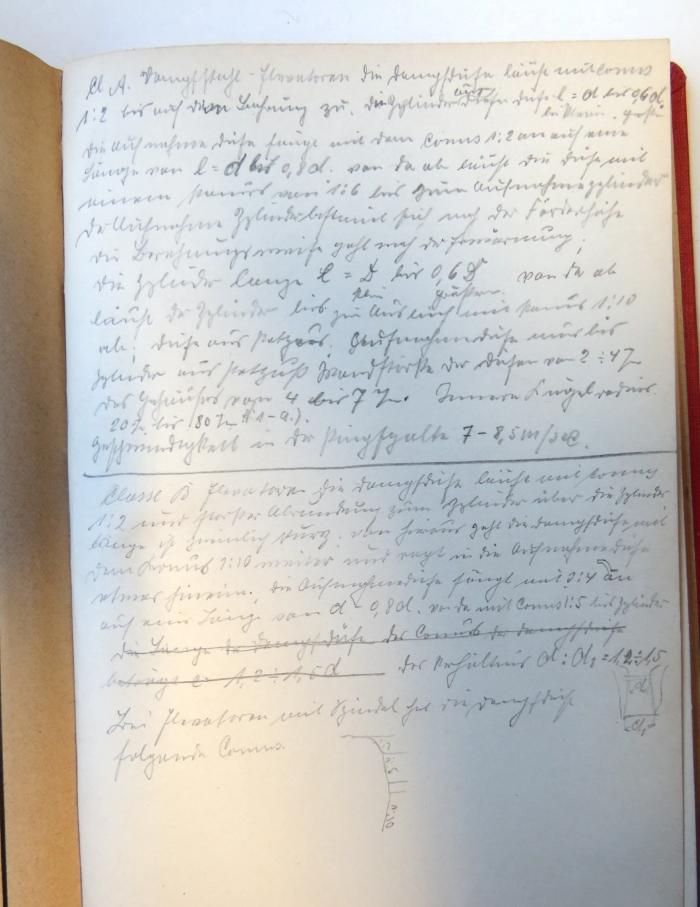 Cl A. Dampfstahl-Elevatoren die Dampfdüse läuft mit Conus
1:2 bis nach dem Bohrung zu. Die Zylinder Düse l = d bis 0,6 d.
Die Aufnahmedüse fängt mit dem Conus 1:2 an auf eine
Länge von l = d bis 0,8 d. von da ab läuft die Düse mit
einem Konus von 1:6 bis zum Aufnahmezylinder
Der Aufnahme Zylinder bestimmt sich nach der Förderhöhe
Die Berechnungsweise geht nach der Erwärmung,
Die Zylinder Länge L = D bis 0,6 D von da ab
klein größere
läuft der Zylinder bis zu Auslauf mit Konus 1:10
ab, Düse aus Rotguss. Aufnahmedüse nur bis
Zylinder aus Rotguß Wandstärke der Düsen von 2÷4
des Gehäuses von 4 bis 7 Innere Kugel
20 bis 80
Geschwindigkeit in der Ringspalte 7 – 8,5 m/sec.
Classe B Elevatoren Die Dampfdüse läuft mit Conus
1:2 und starker Abrundung zum Zylinder über die Zylinder
länge ist ziemlich kurz. von hieraus geht die Dampfdüse mit
dem Konus 1:10 weiter und ragt in die Aufnahmedüse
etwas hinein. Die Aufnahmedüse fängt mit 3:4 an
auf eine Länge von d – 0,8 d. von da mit Conus 1:5 bis Zylinder
Die Länge der Dampfdüse des Conus der Dampfdüse
beträgt 1,2÷1,5 d das Verhältnis d : d₁ = 1,2÷1,5
Bei Elevatoren mit Spindel hat die Dampfdüse
d
folgende Conus.
d₁
1:10